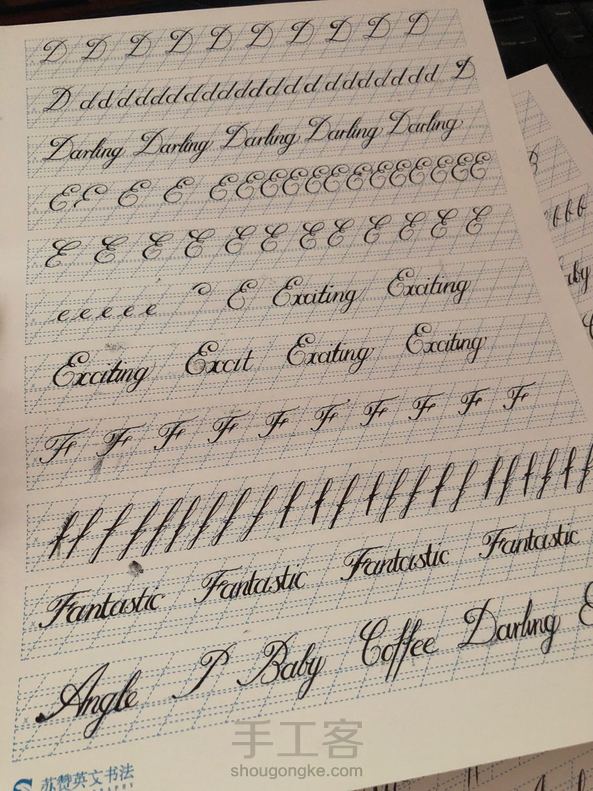 D D D D D D D D D D
D d d d d d d d d d d d d d d d d d d d d D
Darling Darling Darling Darling Darling
E E E E E E E E E E E E E E E E
E E E E E E E E E E E
e e e e e E Exciting Exciting
Exciting Excit Exciting Exciting
F F F F F F F F F F
f f f f f f f f f f f f f f f f f f f f f f f
Fantastic Fantastic Fantastic Fantastic
Angle P Baby Coffee Darling E
苏赞英文书法
手工客
shougongke.com